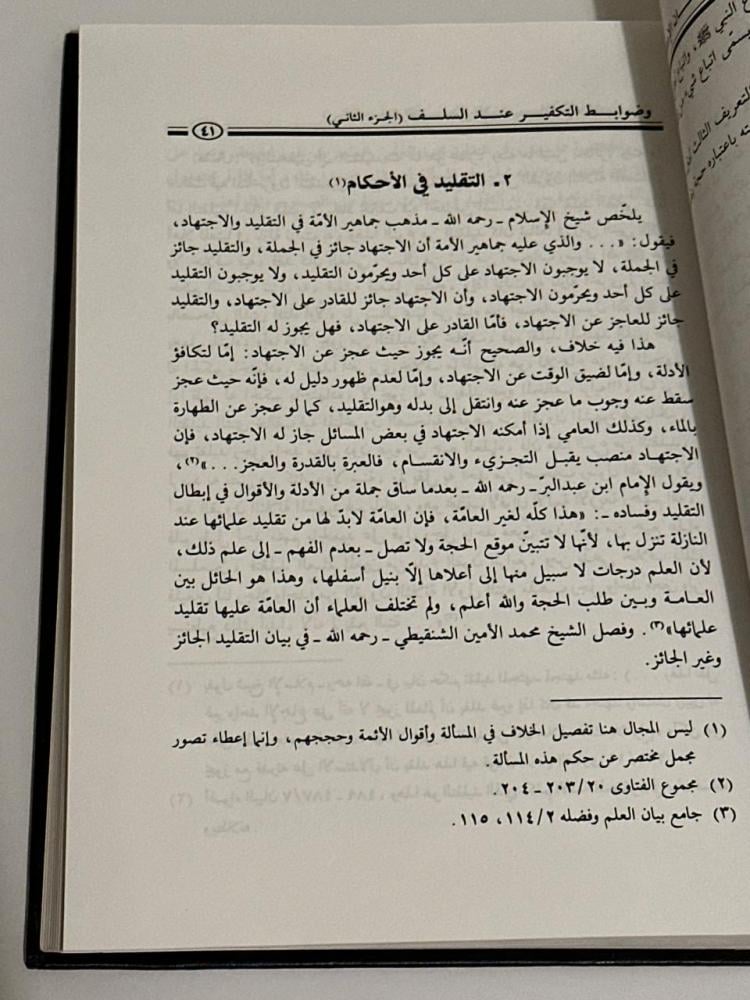 وضوابط التكفير عند السلف (الجزء الثاني)
٤١
٢ ـ التقليد في الأحكام(١)
يلخّص شيخ الإسلام ـ رحمه الله ـ مذهب جماهير الأمّة في التقليد والاجتهاد،
فيقول: «. . . والذي عليه جماهير الأمة أن الاجتهاد جائز في الجملة، والتقليد جائز
في الجملة، لا يوجبون الاجتهاد على كل أحد ويحرّمون التقليد، ولا يوجبون التقليد
على كل أحد ويحرّمون الاجتهاد، وأن الاجتهاد جائز للقادر على الاجتهاد، والتقليد
جائز للعاجز عن الاجتهاد، فأمّا القادر على الاجتهاد، فهل يجوز له التقليد؟
هذا فيه خلاف، والصحيح أنّه يجوز حيث عجز عن الاجتهاد: إمّا لتكافؤ
الأدلة، وإمّا لضيق الوقت عن الاجتهاد، وإمّا لعدم ظهور دليل له، فإنّه حيث عجز
سقط عنه وجوب ما عجز عنه وانتقل إلى بدله وهوالتقليد، كما لو عجز عن الطهارة
بالماء، وكذلك العامي إذا أمكنه الاجتهاد في بعض المسائل جاز له الاجتهاد، فإن
الاجتهاد منصب يقبل التجزيء والانقسام، فالعبرة بالقدرة والعجز. . .»(٢)،
ويقول الإمام ابن عبدالبرّ ـ رحمه الله ـ بعدما ساق جملة من الأدلة والأقوال في إبطال
التقليد وفساده ـ: «هذا كلّه لغير العامّة، فإن العامّة لابدّ لها من تقليد علمائها عند
النازلة تنزل بها، لأنّها لا تتبينّ موقع الحجة ولا تصل ـ بعدم الفهم ـ إلى علم ذلك،
لأن العلم درجات لا سبيل منها إلى أعلاها إلّا بنيل أسفلها، وهذا هو الحائل بين
العامة وبين طلب الحجة والله أعلم، ولم تختلف العلماء أن العامّة عليها تقليد
علمائها»(٣). وفصل الشيخ محمد الأمين الشنقيطي ـ رحمه الله ـ في بيان التقليد الجائز
وغير الجائز.
(١) ليس المجال هنا تفصيل الخلاف في المسألة وأقوال الأئمة وحججهم، وإنما إعطاء تصور
مجمل مختصر عن حكم هذه المسألة.
(٢) مجموع الفتاوى ٢٠٣/٢٠ ـ ٢٠٤.
(٣) جامع بيان العلم وفضله ١١٤/٢، ١١٥.